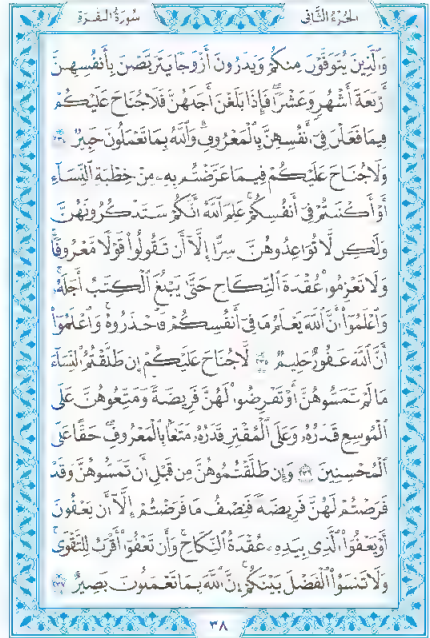 سورة البقرة
الجزء الثاني
والذين يتوفون منكم ويذرون أزوجا يتربصن بأنفسهن
أربعة أشهر وعشرا فإذا بلغن أجلهن فلا جناح عليكم
فيما فعلن في أنفسهن بالمعروف والله بما تعملون خبير ٢٣٤
ولا جناح عليكم فيما عرضتم به من خطبة النساء
أو أكننتم في أنفسكم علم الله أنكم ستذكرونهن
ولكن لا تواعدوهن سرا إلا أن تقولوا قولا معروفا
ولا تعزموا عقدة النكاح حتى يبلغ الكتب أجله
واعلموا أن الله يعلم ما في أنفسكم فاحذروه واعلموا
أن الله غفور حليم ٢٣٥ لا جناح عليكم إن طلقتم النساء
ما لم تمسوهن أو تفرضوا لهن فريضة ومتعوهن على
الموسع قدره وعلى المقتر قدره متعا بالمعروف حقا على
المحسنين ٢٣٦ وإن طلقتموهن من قبل أن تمسوهن وقد
فرضتم لهن فريضة فنصف ما فرضتم إلا أن يعفون
أو يعفوا الذي بيده عقدة النكاح وأن تعفوا أقرب للتقوى
ولا تنسوا الفضل بينكم إن الله بما تعملون بصير ٢٣٧
٣٨